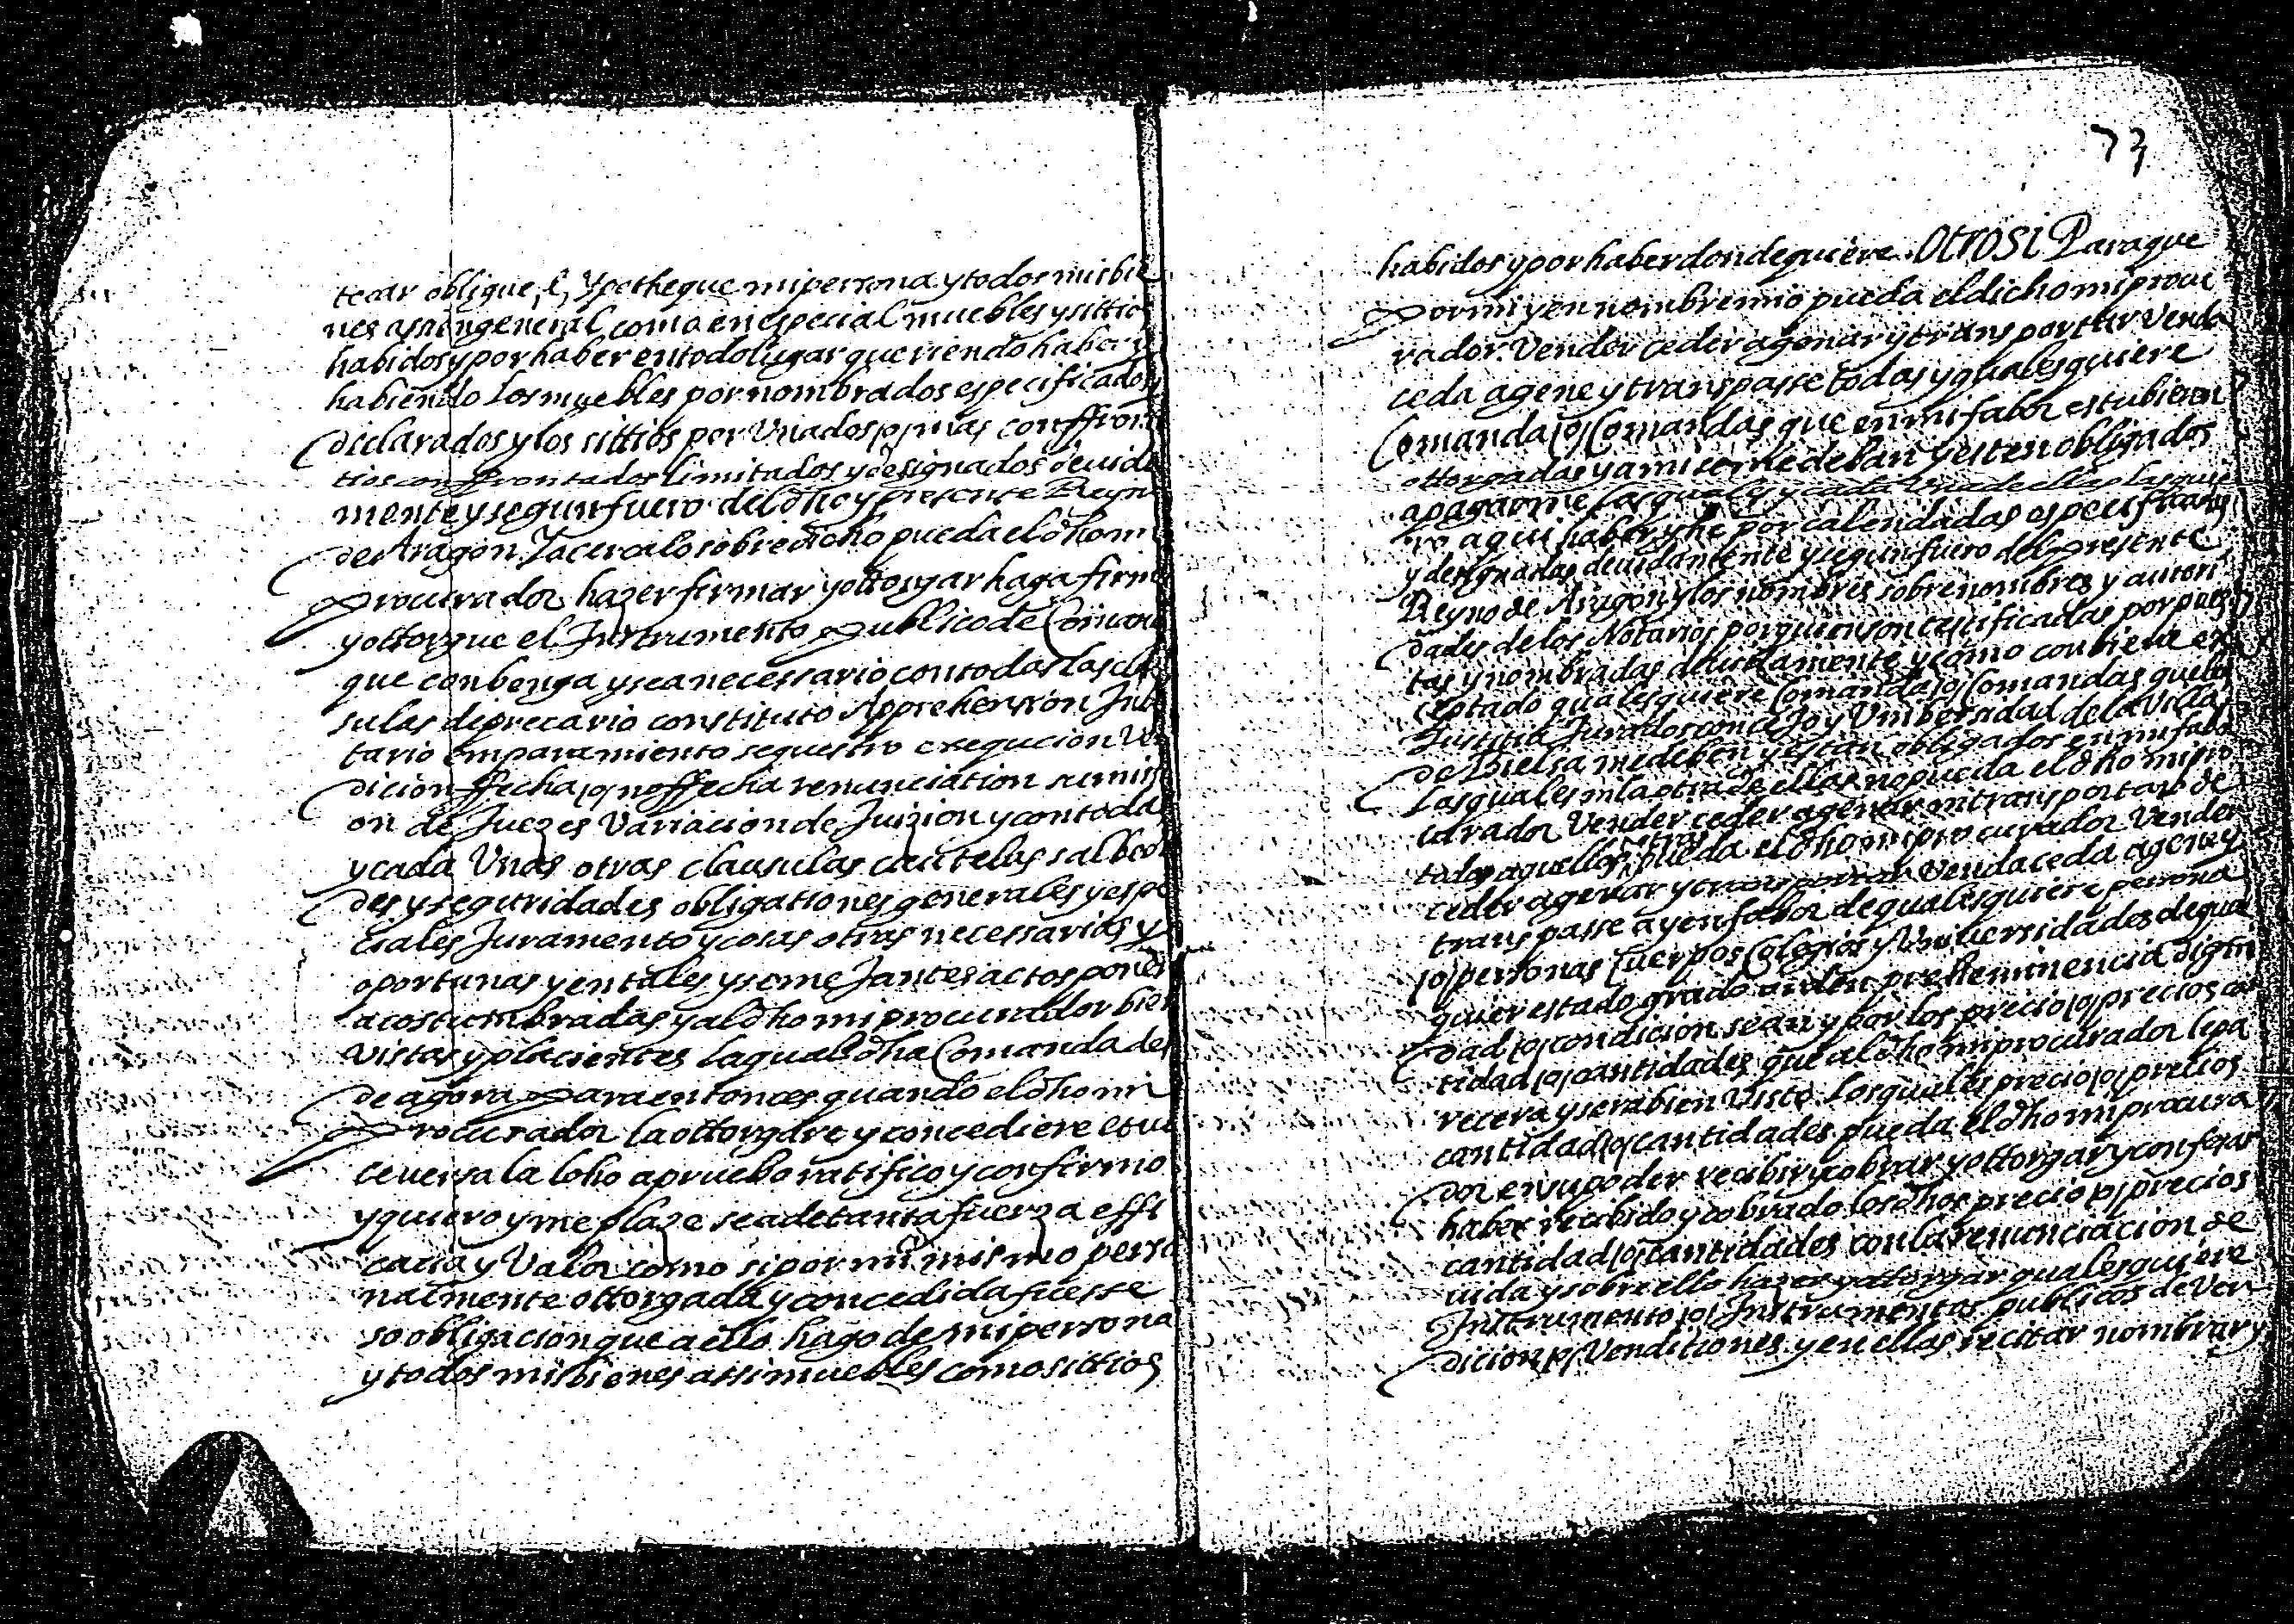 tecar oblique, e, Ypotheque mi persona y todos mis bie
nes assi en general como en especial muebles y sittios
habidos y por haber en todo lugar queriendo haber y
habiendo los muebles por nombrados especificados y
declarados y los sittios por Una dos |o| mas conffron
tios conffrontados limitados y designados deuida
mente y segun fuero del dho y presente Reyno
de Aragon. Y acerca lo sobredicho pueda el dho mi
Procurador hazer firmar y ottorgar haga firme
y ottorgue el Instrumento publico de Coman
que conbenga y sea necessario con todas las clau
sulas de precario constituto Apprehension Inbe
tario emparamiento sequestro exequcion Ven
dicion ffecha |o| no ffecha renunciation sumissi
on de Juezes Variacion de Juizion y con todas
y cada Unas otras clausulas cautelas salbeda
des y seguridades obligationes generales y espe
ciales Juramento y cosas otras necessarias y
oportunas y en tales y semejantes actos poner
acostumbradas y al dho mi procurador bien
Vistas y placientes la qual dha Comanda des
de agora para entonces quando el dho mi
Procurador la ottorgare y concediere et vi
ceuersa la loho apruebo ratifico y confirmo
y quiero y me plaze sea de tanta fuerza effi
cacia y Valor como si por mi mismo perso
nalmente ottorgada y concedida fuesse
so obligacion que a ello hago de mi persona
y todos mis bienes assi muebles como sittios
73
habidos y por haber donde quiere. Otrosi Para que
por mi y en nombre mio pueda el dicho mi procu
rador. Vender ceder agenar y transportar Venda
ceda agene y transpasse todas y quales quiere
Comanda |o| Comandas que en mi fabor estubieren
ottorgadas y a mi se me deban y esten obligados
a pagarme las quales y cada Una de ellas las quie
ro aqui haber y he por calendadas especificadas
y designadas deuidamente y segun fuero del presente
Reyno de Aragon y los nombres sobrenombres y autori
dades de los Notarios por quien son testificadas por pues
tas y nombradas deuidamente y como conbiene ex
ceptado quales quiere Comanda |o| Comandas que los
Justicia Jurados concejo y Unibersidad de la Villa
de Bielsa me deben y estan obligados en mi fabor
Las quales ni la otra de ellas no pueda el dho mi pro
curador Vender ceder agenar ni transportar de
todas aquellas otras pueda el dho mi procurador Vender
ceder agenar y transportar Venda ceda agene y
transpasse a y en fabor de quales quiere persona
|o| personas Cuerpos Colegios y Uniuersidades de qual
quier estado grado orden preheminencia digni
dad |o| condicion sean y por los precio |o| precios can
tidad |o| cantidades que al dho mi procurador lepa
recera y sera bien Visto. Los quales precio |o| precios
cantidad |o| cantidades pueda el dho mi procura
dor en su poder recibir y cobrar y ottorgar y confesar
haber recibido y cobrado los dhos precio |o| precios
cantidad |o| cantidades con la renunciacion de
uida y sobre ello hazer y ottorgar quales quiere
Instrumento |o| Instrumentos publicos de Ven
dicion |o| Venditiones y en ellas recitar nombrar y